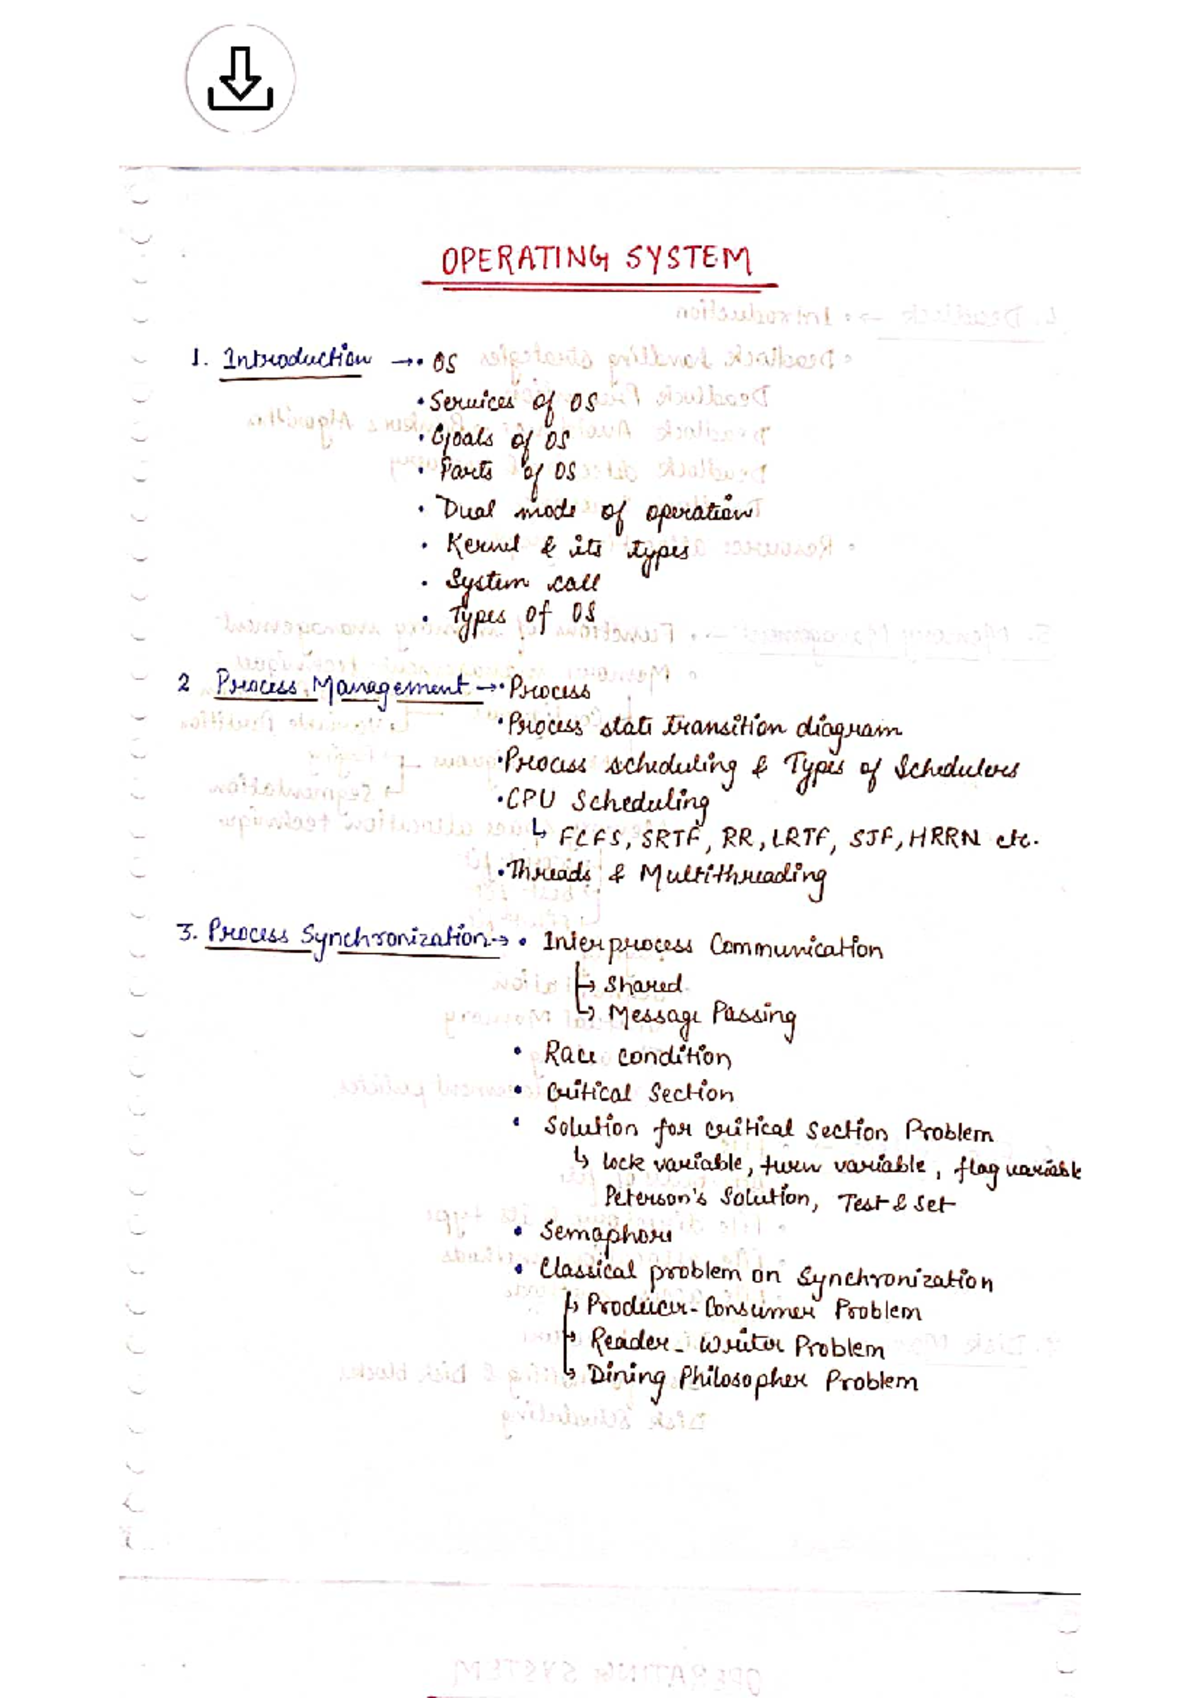 OPERATING SYSTEM
1. Introduction → • OS
• Services of OS
• Goals of OS
• Parts of OS
• Dual mode of operation
• Kernel & its types
• System call
• Types of OS
2 Process Management → • Process
• Process state transition diagram
• Process scheduling & Types of Schedulers
• CPU Scheduling
↳ FCFS, SRTF, RR, LRTF, SJF, HRRN etc.
• Threads & Multithreading
3. Process Synchronization → • Interprocess Communication
↳ Shared
↳ Message Passing
• Race condition
• Critical Section
• Solution for critical section Problem
↳ lock variable, turn variable, flag variable
Peterson's Solution, Test & Set
• Semaphore
• Classical problem on Synchronization
↳ Producer-Consumer Problem
↳ Reader-Writer Problem
↳ Dining Philosopher Problem